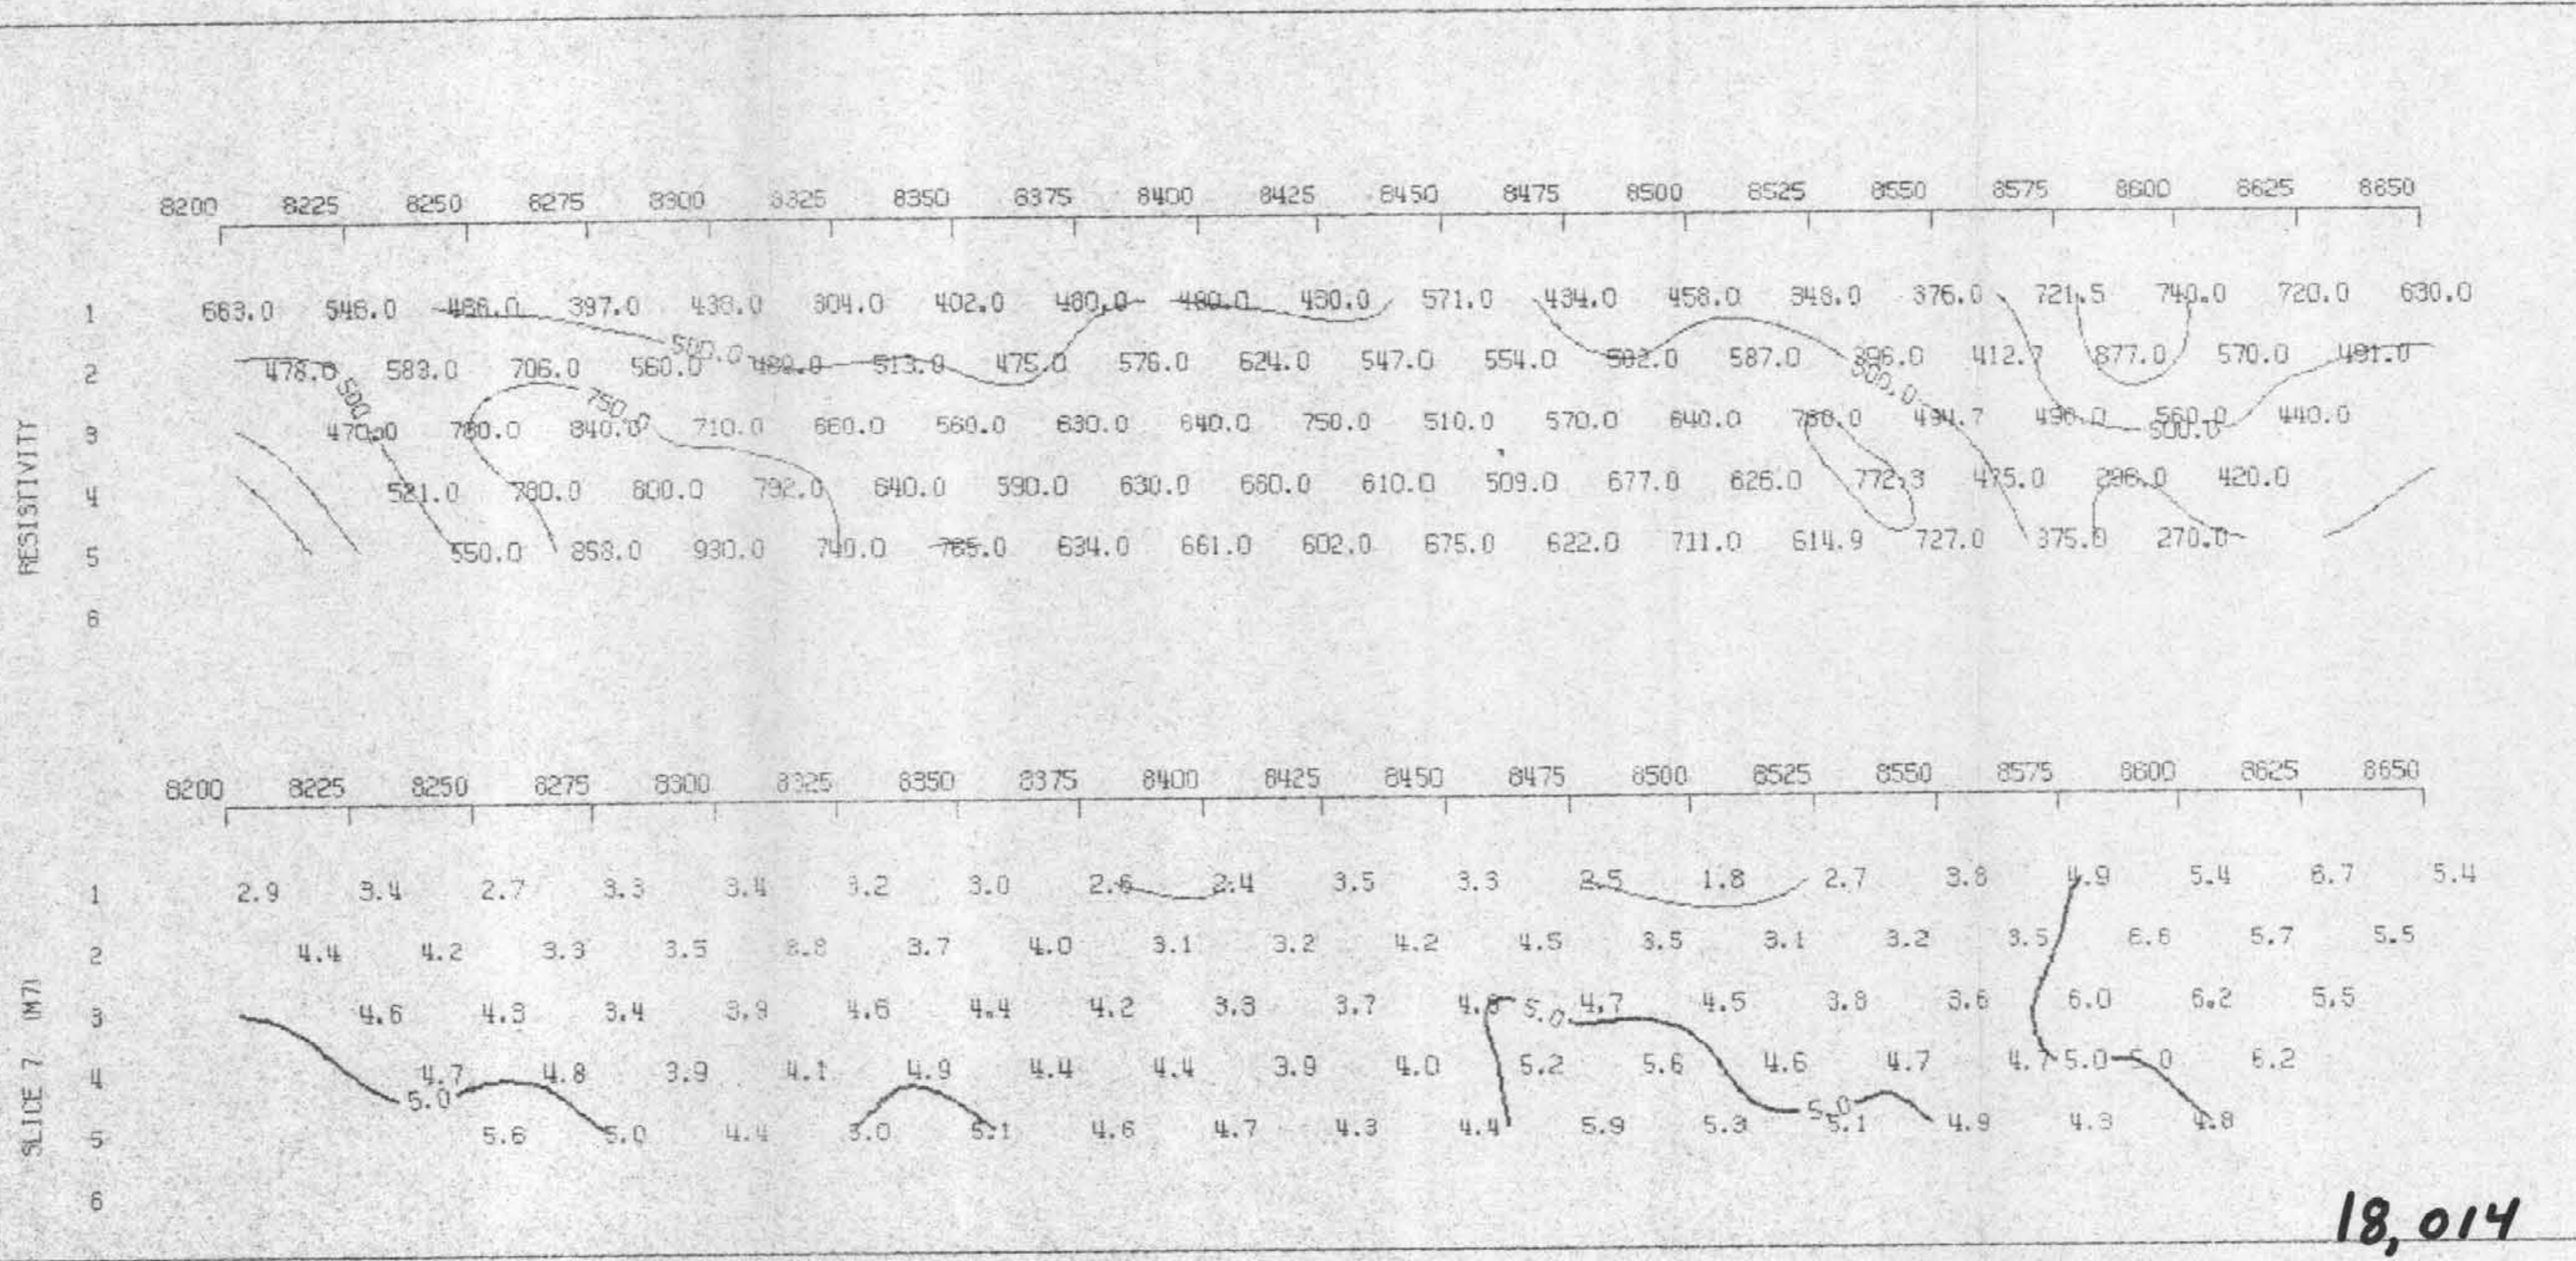 8200 8225 8250 8275 8300 8325 8350 8375 8400 8425 8450 8475 8500 8525 8550 8575 8600 8625 8650
1 663.0 546.0 486.0 397.0 438.0 304.0 402.0 480.0 480.0 430.0 571.0 434.0 458.0 348.0 376.0 721.5 740.0 720.0 630.0
500.0
2 478.0 583.0 706.0 560.0 489.0 513.0 475.0 576.0 624.0 547.0 554.0 502.0 587.0 396.0 412.7 877.0 570.0 491.0
500. 750.0 500.0
3 470.0 780.0 840.0 710.0 660.0 560.0 630.0 640.0 750.0 510.0 570.0 640.0 780.0 494.7 490.0 560.0 440.0
500.0
4 521.0 780.0 800.0 792.0 640.0 590.0 630.0 660.0 610.0 509.0 677.0 626.0 772.3 475.0 296.0 420.0
5 550.0 858.0 930.0 740.0 765.0 634.0 661.0 602.0 675.0 622.0 711.0 614.9 727.0 375.0 270.0
6
RESISTIVITY
8200 8225 8250 8275 8300 8325 8350 8375 8400 8425 8450 8475 8500 8525 8550 8575 8600 8625 8650
1 2.9 3.4 2.7 3.3 3.4 3.2 3.0 2.6 2.4 3.5 3.3 2.5 1.8 2.7 3.8 4.9 5.4 6.7 5.4
2 4.4 4.2 3.3 3.5 3.8 3.7 4.0 3.1 3.2 4.2 4.5 3.5 3.1 3.2 3.5 6.6 5.7 5.5
3 4.6 4.3 3.4 3.9 4.6 4.4 4.2 3.3 3.7 4.8 5.0 4.7 4.5 3.8 3.6 6.0 6.2 5.5
4 4.7 4.8 3.9 4.1 4.9 4.4 4.4 3.9 4.0 5.2 5.6 4.6 4.7 4.7 5.0 5.0 6.2
5.0 5.0
5 5.6 5.0 4.4 5.1 4.6 4.7 4.3 4.4 5.9 5.3 5.1 4.9 4.3 4.8
6
SLICE 7 (M7)
18,014